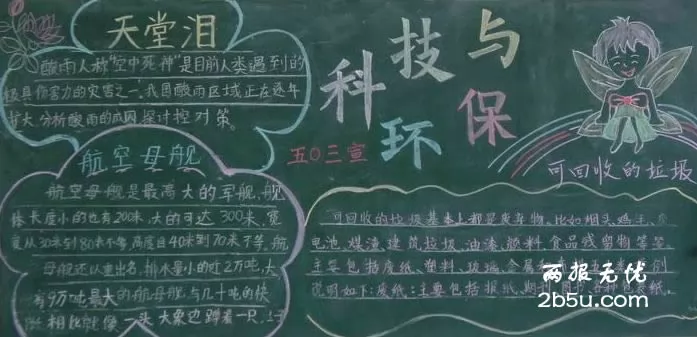 天堂泪
酸雨人称"空中死神"是目前人类遇到的
极具伤害力的灾害之一,我国酸雨区域正在逐年
扩大,分析酸雨的成因探讨控对策。
航空母舰
航空母舰是最高大的军舰,舰
体长度小的也有200米,大的可达300米,宽
度从30米到80米不等,高度自40米到70米不等,航
母舰还以重出名,排水量小的过2万吨,大
有9万吨最大的航母舰与几十吨的快
相比就像一头大象边蹲着一只
科技与
环保
五〇三宣
可回收的垃圾
可回收的垃圾基本上都是废弃物,比如烟头、鸡毛、
电池、煤渣、建筑垃圾、油漆、颜料、食品残留物等等
主要包括废纸、塑料、玻璃、金属和
说明如下:废纸:主要包括报纸、期刊、图书、各种包装纸。
两报无优
2b5u.com